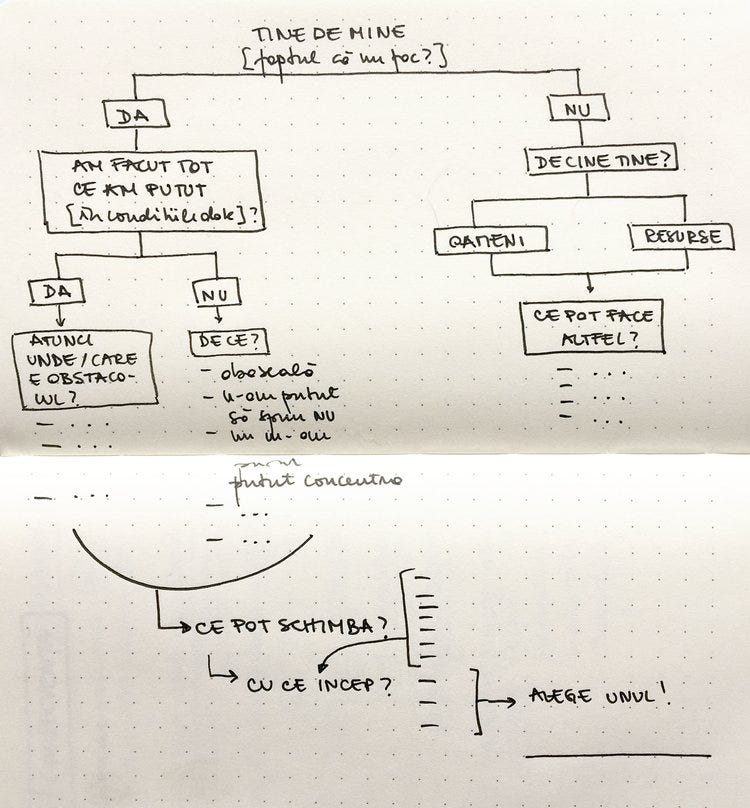 TINE DE MINE
[faptul că nu fac?]
DA
NU
AM FACUT TOT
CE AM PUTUT
[în condițiile date]?
DE CINE TINE?
OAMENI
RESURSE
DA
NU
ATUNCI
UNDE/CARE
E OBSTACO-
LUL?
- ...
- ...
- ...
DE CE?
- oboseală
- n-am putut
să spun NU
- nu m-am
putut concentra
- ...
- ...
CE POT FACE
ALTFEL?
- ...
- ...
- ...
CE POT SCHIMBA?
CU CE INCEP?
ALEGE UNUL!